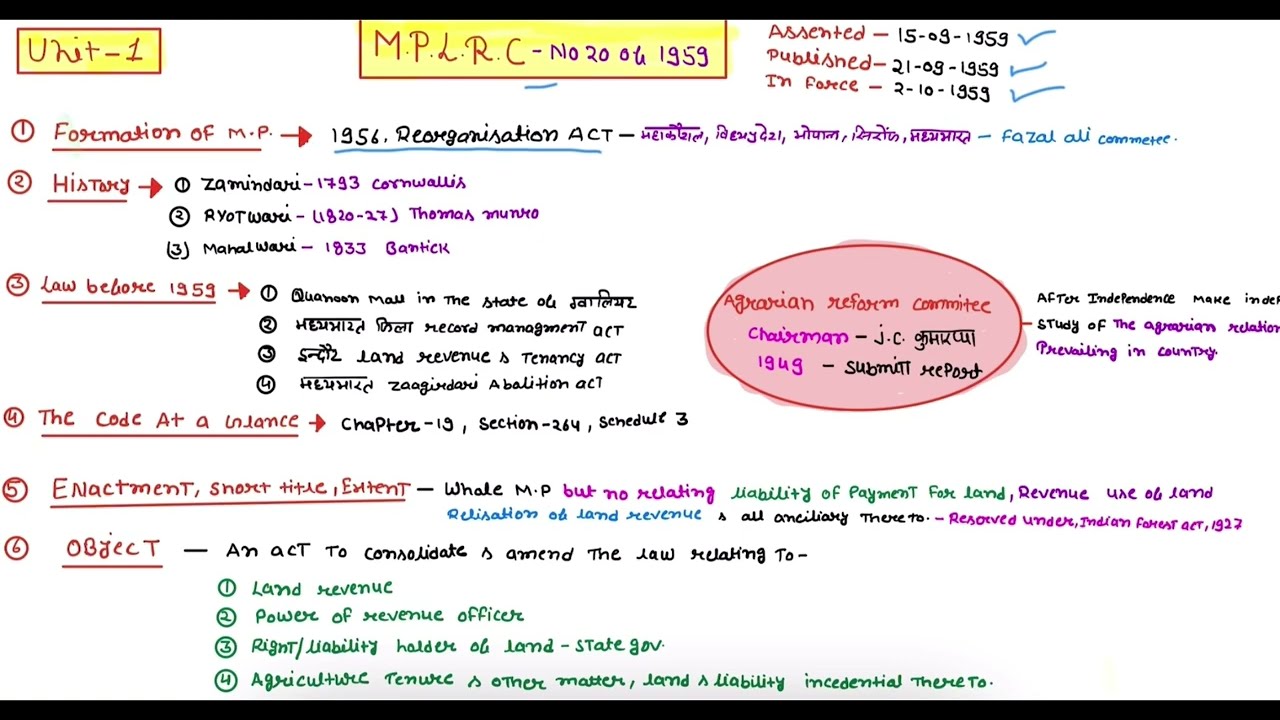 Unit-1
M.P.L.R.C - No 20 of 1959
Assented - 15-09-1959
Published - 21-09-1959
In force - 2-10-1959
① Formation of M.P. → 1956, Reorganisation ACT - महाकौशल, विंध्यप्रदेश, भोपाल, सिरोंज, मध्यभारत - Fazal ali commetee.
② History → ① Zamindari - 1793 Cornwallis
② Ryotwari - (1820-27) Thomas munro
(3) Mahalwari - 1833 Bantick
③ Law before 1959 → ① Quanoon Mall in The state of ग्वालियर
② मध्यभारत जिला record managment act
③ इन्दौर land revenue & Tenancy act
④ मध्यभारत Zaagirdari Abalition act
Agrarian reform commitee
Chairman - J.C. कुमारप्पा
1949 - submitt report
After Independence make inde
study of The agrarian relation
Prevailing in country.
④ The Code At a Glance → Chapter-19, Section-264, Schedule 3
⑤ Enactment, short title, Extent - Whole M.P but no relating liability of Payment for land, Revenue use of land
Relisation of land revenue & all anciliary Thereto. - Reserved under, Indian forest act, 1927
⑥ Object - An act To consolidate & amend The law relating To -
① Land revenue
② Power of revenue officer
③ Right/liability holder of land - state gov.
④ Agriculture Tenure & other matter, land & liability incedential Thereto.